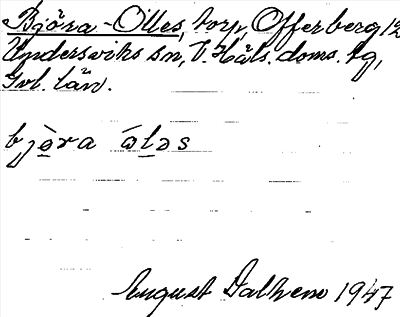 Björa-Olles, torp, Offerberg 12
Undersviks sn, V. Häls. doms. tg,
Gvl. län.
bjə̀ra óləs
August Dalhem 1947